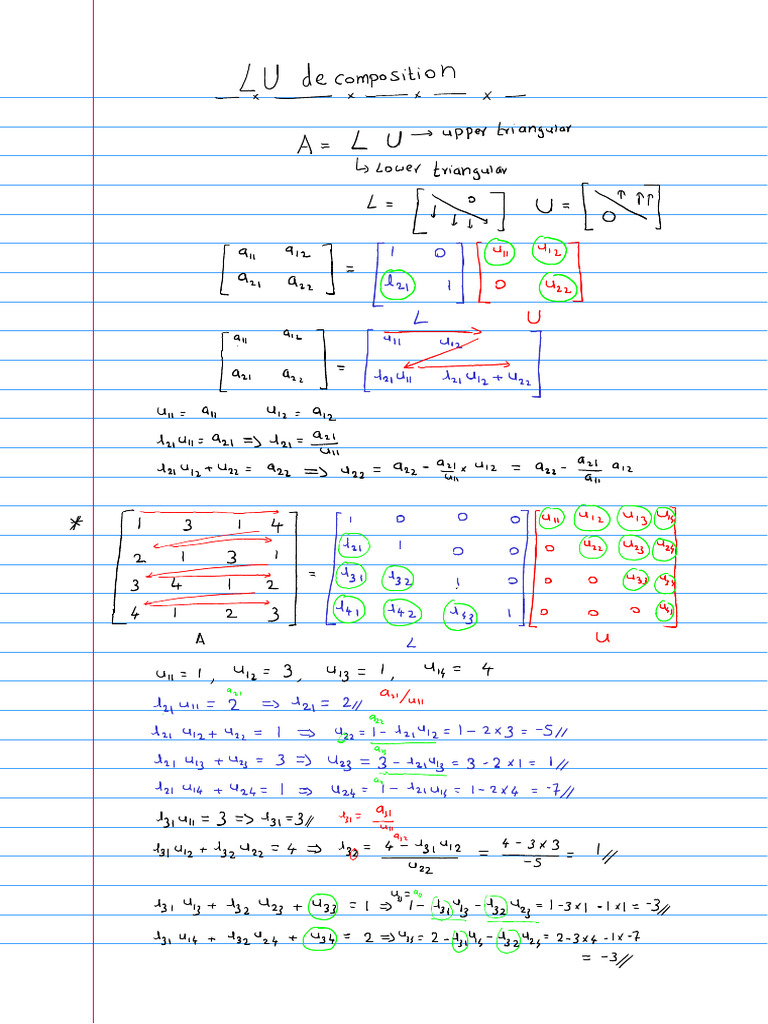 LU decomposition
A = L U → upper triangular
↳ Lower triangular
L = [ 0 ] U = [ 0 ]
[ a11 a12 ; a21 a22 ] = [ 1 0 ; l21 1 ] [ u11 u12 ; 0 u22 ]
L U
[ a11 a12 ; a21 a22 ] = [ u11 u12 ; l21 u11 l21 u12 + u22 ]
u11 = a11 u12 = a12
l21 u11 = a21 => l21 = a21/u11
l21 u12 + u22 = a22 => u22 = a22 - a21/u11 × u12 = a22 - a21/a11 a12
* [ 1 3 1 4 ] = [ 1 0 0 0 ] [ u11 u12 u13 u14 ]
[ 2 1 3 1 ] [ l21 1 0 0 ] [ 0 u22 u23 u24 ]
[ 3 4 1 2 ] [ l31 l32 1 0 ] [ 0 0 u33 u34 ]
[ 4 1 2 3 ] [ l41 l42 l43 1 ] [ 0 0 0 u44 ]
A L U
u11 = 1, u12 = 3, u13 = 1, u14 = 4
a21
l21 u11 = 2 => l21 = 2// a21/u11
a22
l21 u12 + u22 = 1 => u22 = 1 - l21 u12 = 1 - 2 × 3 = -5//
a23
l21 u13 + u23 = 3 => u23 = 3 - l21 u13 = 3 - 2 × 1 = 1//
l21 u14 + u24 = 1 => u24 = 1 - l21 u14 = 1 - 2 × 4 = -7//
l31 u11 = 3 => l31 = 3// l31 = a31/u11
l31 u12 + l32 u22 = 4 => l32 = (4 - l31 u12)/u22 = (4 - 3 × 3)/-5 = 1//
l31 u13 + l32 u23 + u33 = 1 => 1 - l31 u13 - l32 u23 = 1 - 3×1 - 1×1 = -3//
l31 u14 + l32 u24 + u34 = 2 => u34 = 2 - l31 u14 - l32 u24 = 2 - 3×4 - 1×-7
= -3//